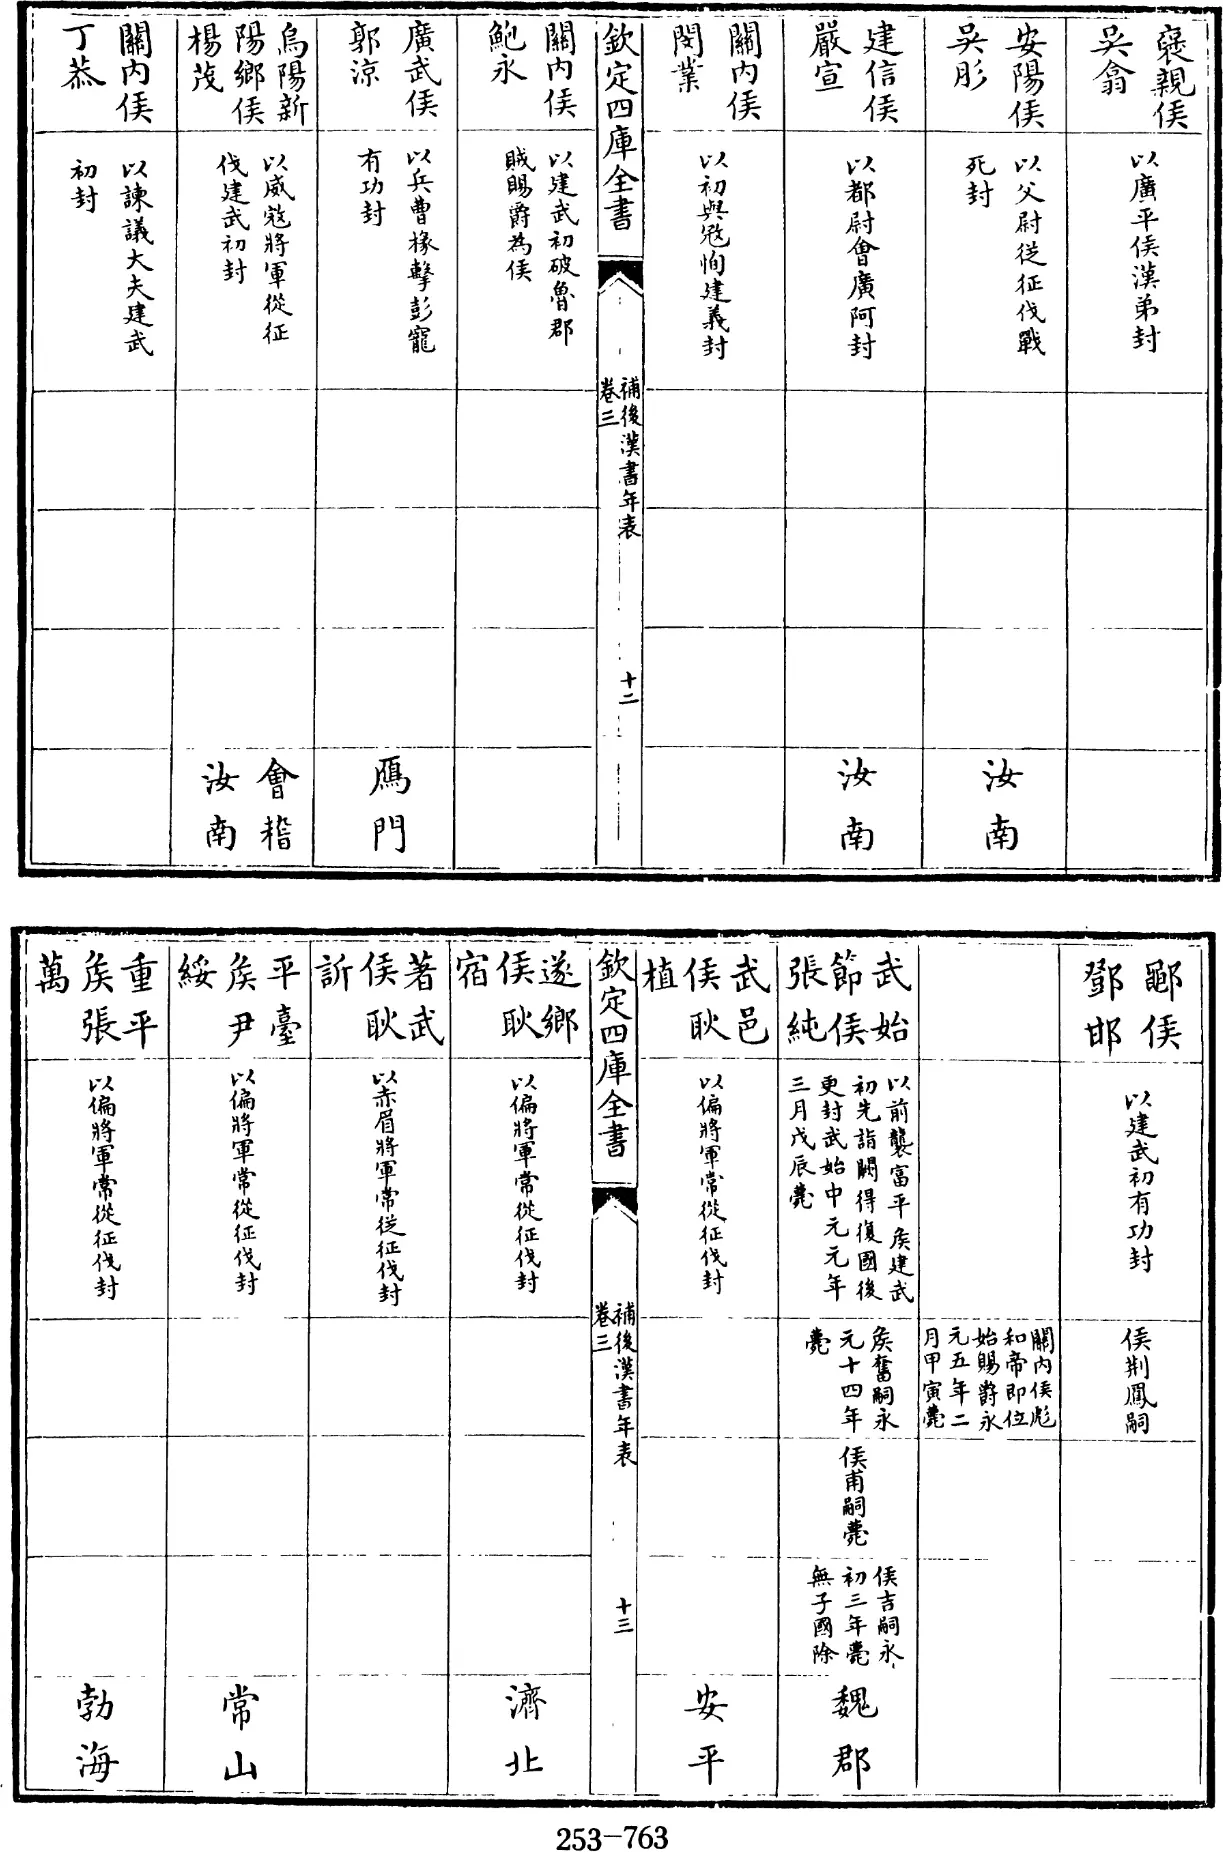 褒親侯
吳翕
以廣平侯漢弟封
安陽侯
吳彤
以父尉從征伐戰
死封
汝南
建信侯
嚴宣
以都尉會廣阿封
汝南
關内侯
閔業
以初與宼恂建義封
欽定四庫全書
補後漢書年表
卷三
十二
關内侯
鮑永
以建武初破魯郡
賊賜爵為侯
廣武侯
郭涼
以兵曹掾擊彭寵
有功封
鴈門
烏陽新
陽鄉侯
楊茂
以威宼將軍從征
伐建武初封
會稽
汝南
關内侯
丁恭
以諫議大夫建武
初封
郿侯
鄧邯
以建武初有功封
侯荆鳳嗣
關内侯彪
和帝即位
始賜爵永
元五年二
月甲寅薨
武始
節侯
張純
以前襲富平侯建武
初先詣闕得復國後
更封武始中元元年
三月戊辰薨
侯奮嗣永
元十四年
薨
侯甫嗣薨
侯吉嗣永
初三年薨
無子國除
魏郡
武邑
侯耿
植
以偏將軍常從征伐封
安平
欽定四庫全書
補後漢書年表
卷三
十三
遂鄉
侯耿
宿
以偏將軍常從征伐封
濟北
著武
侯耿
訢
以赤眉將軍常從征伐封
平臺
侯尹
綏
以偏將軍常從征伐封
常山
重平
侯張
萬
以偏將軍常從征伐封
勃海
253-763